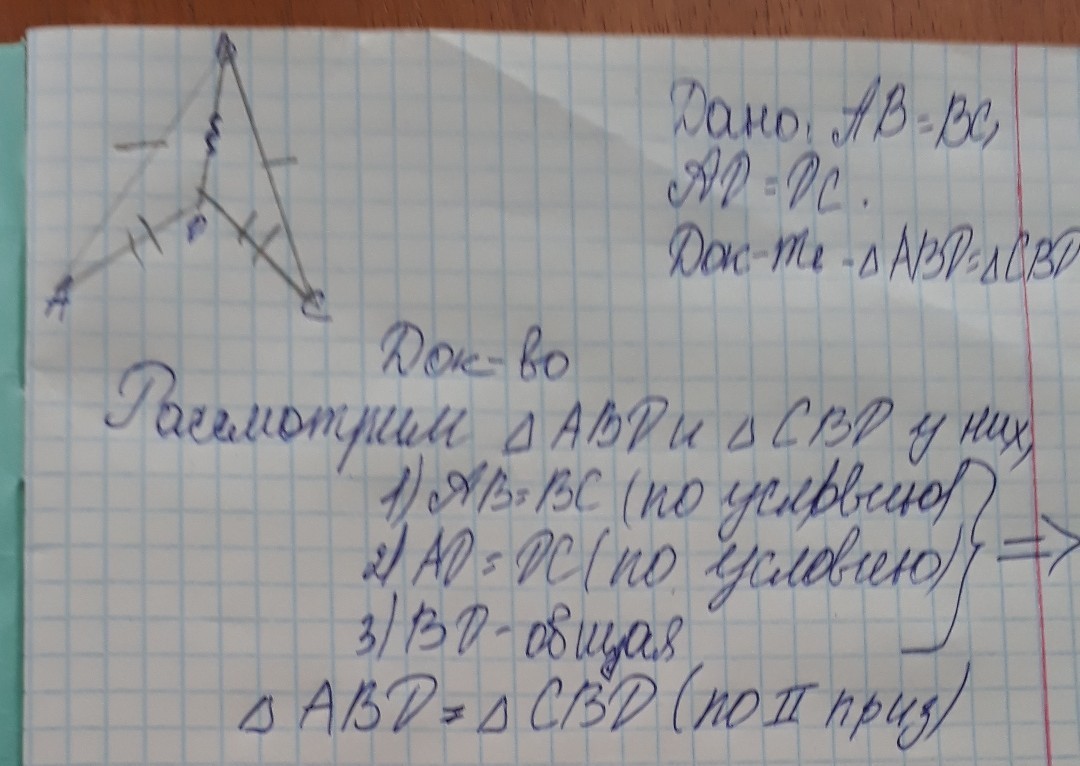 B
D
A
C
Дано: AB=BC,
AD=DC.
Док-ть - △ABD=△CBD
Док-во
Рассмотрим △ABD и △CBD у них,
1) AB=BC (по условию)
2) AD=DC (по условию) =>
3) BD-общая
△ABD=△CBD (по II приз)